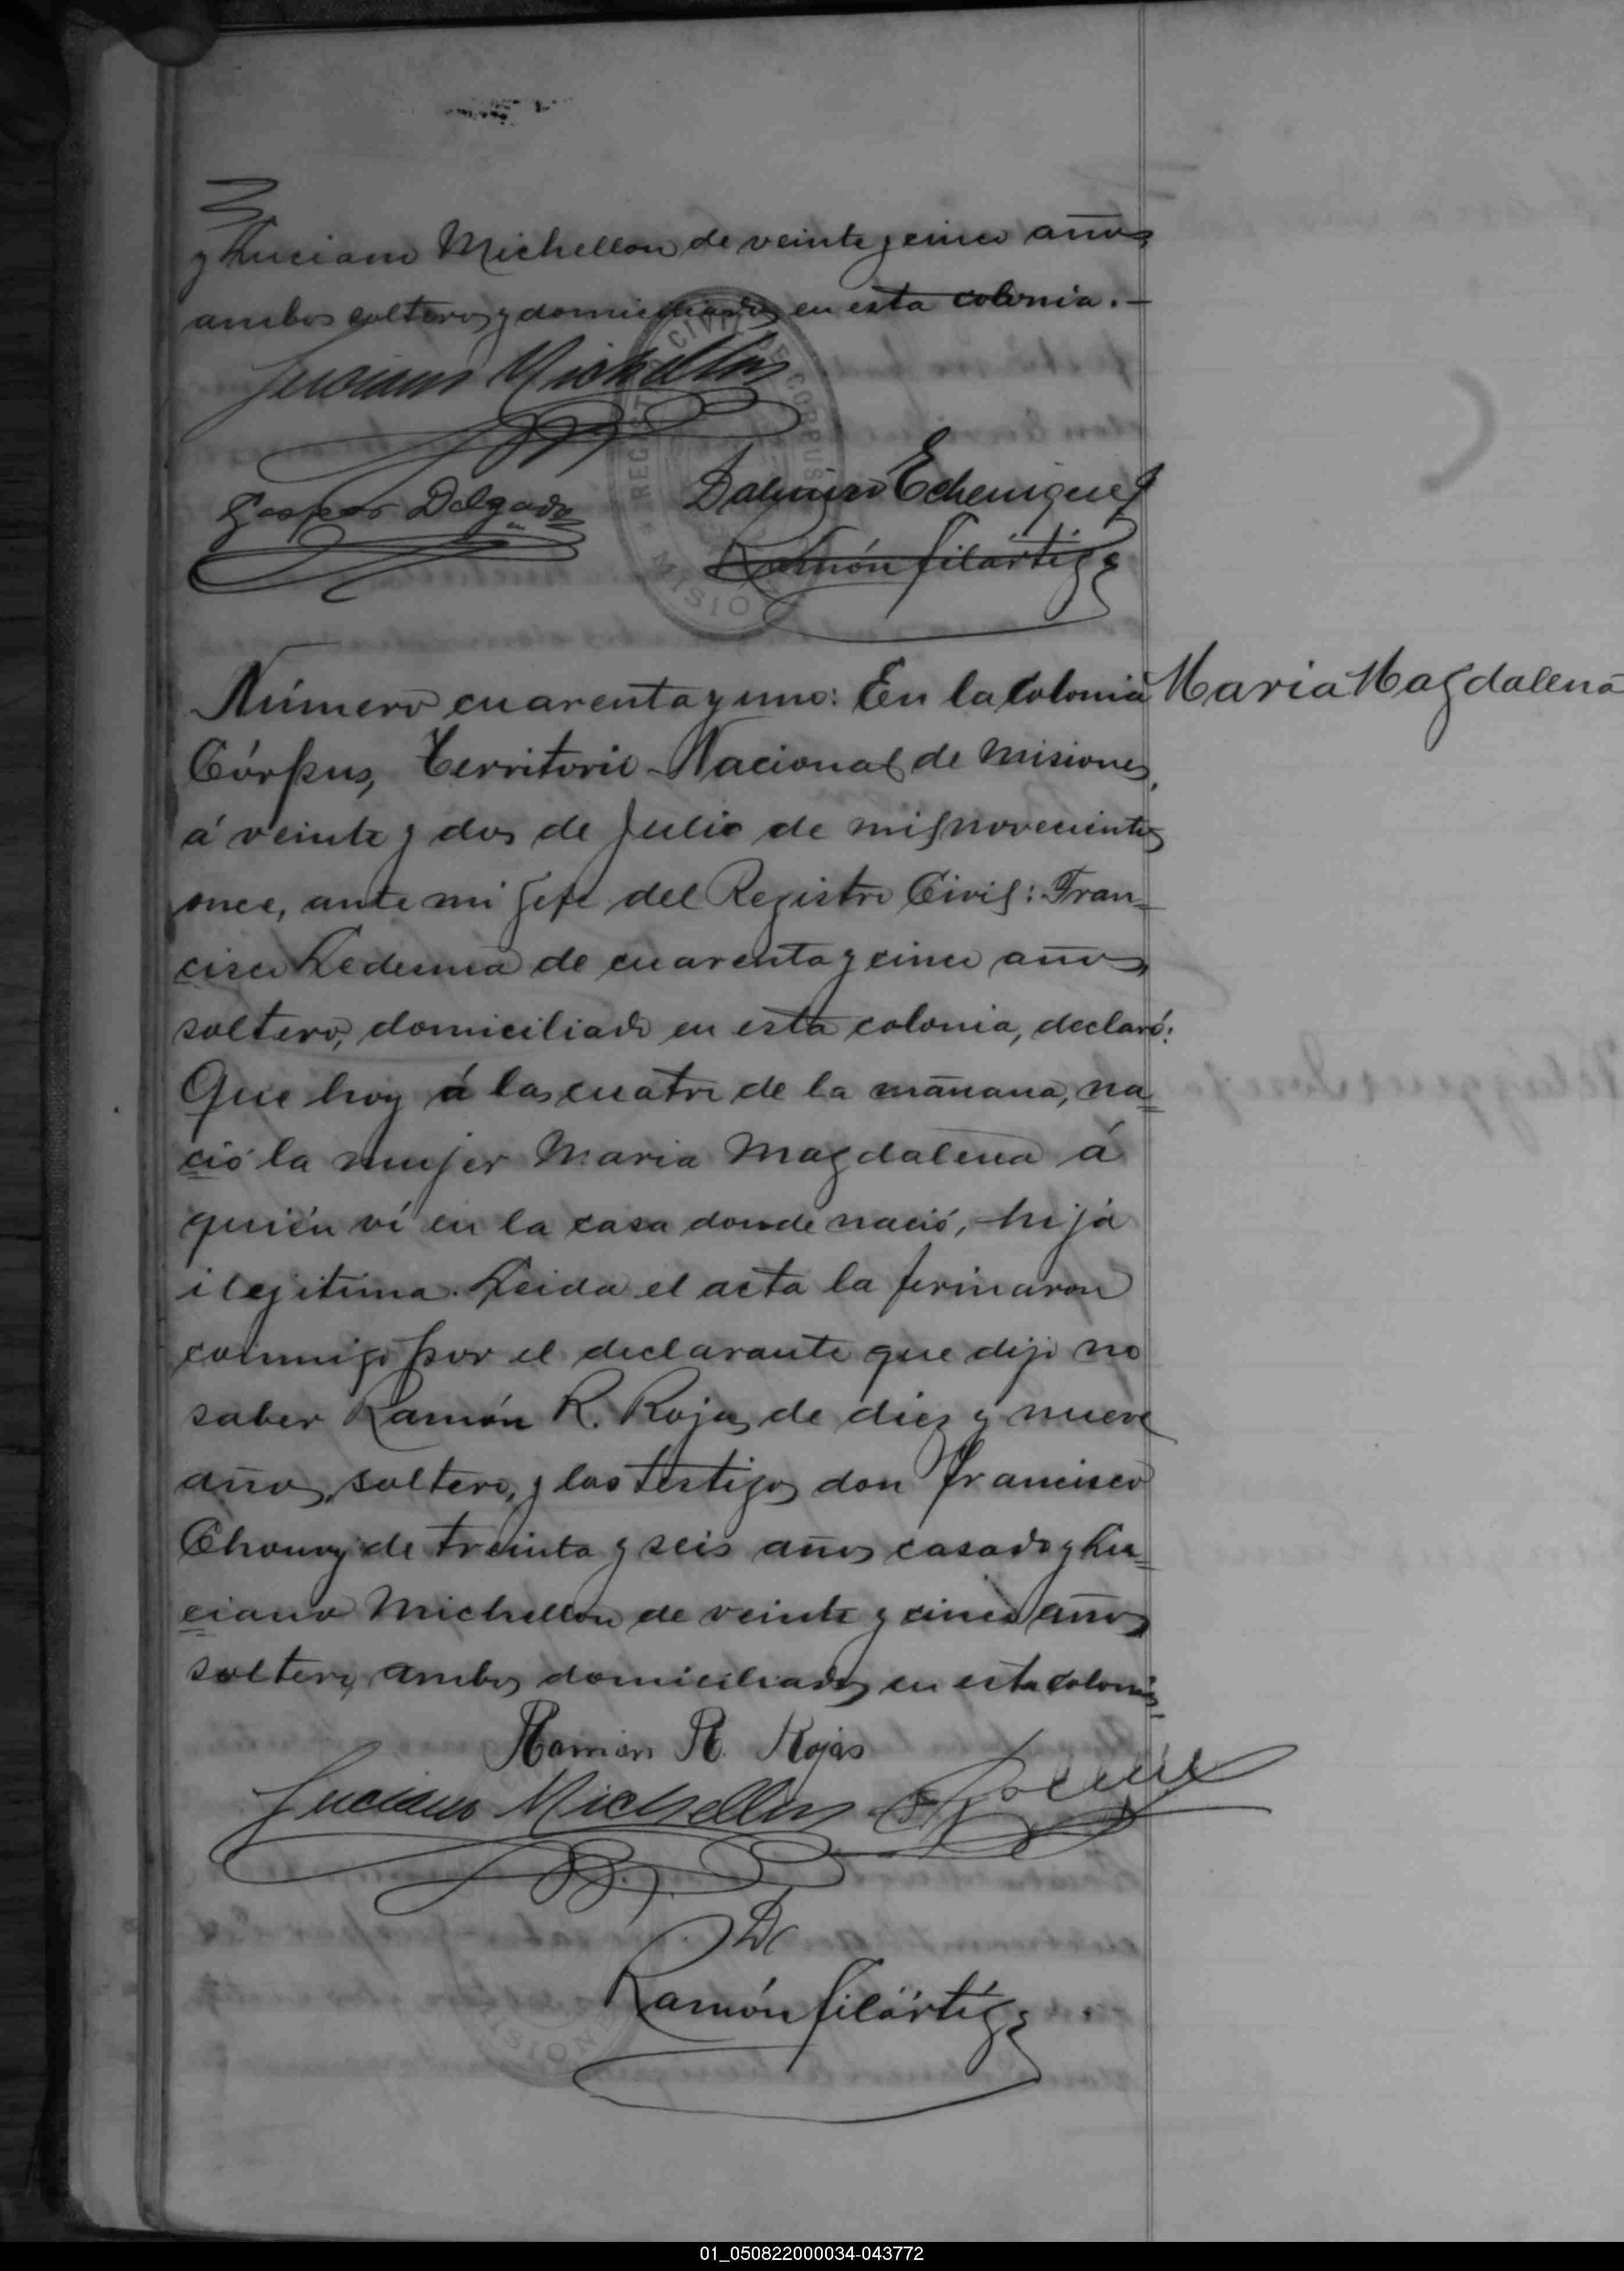 y Luciano Michellon de veinte y cinco años
ambos solteros y domiciliados en esta colonia.—
Luciano Michellon
Gaspar Delgado
Dalmiro Echenique
Ramón Filártiga
REGISTRO CIVIL DE CORPUS
MISIONES
Número cuarenta y uno: En la Colonia
Maria Magdalena
Córpus, Territorio Nacional de Misiones,
á veinte y dos de Julio de mil novecientos
once, ante mi Jefe del Registro Civil: Fran=
cisco Ledesma de cuarenta y cinco años,
soltero, domiciliado en esta colonia, declaró:
Que hoy á las cuatro de la mañana, na=
ció la mujer Maria Magdalena á
quién ví en la casa donde nació, hija
ilejitima. Leida el acta la firmaron
conmigo por el declarante que dijo no
saber Ramón R. Rojas de diez y nueve
años, soltero, y los testigos don Francisco
de treinta y seis años casado y Lu=
ciano Michellon de veinte y cinco años
soltero, ambos domiciliados en esta colonia
Ramon R. Rojas
Luciano Michellon
Ramón Filártiga
01_050822000034-043772